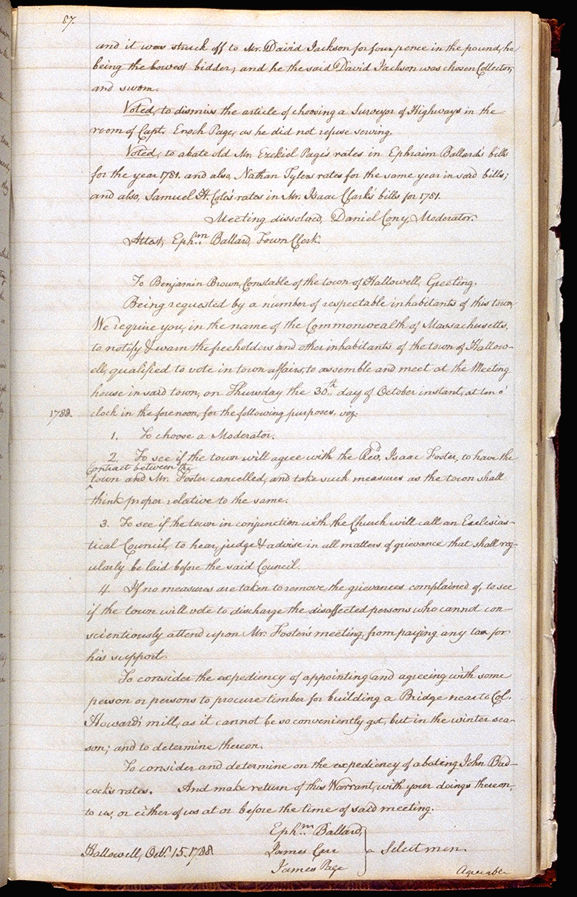 87.
and it was struck off to Mr. David Jackson for four pence in the pound, he
being the lowest bidder; and he the said David Jackson was chosen Collector,
and sworn.
Voted, to dismiss the article of choosing a Surveyor of Highways in the
room of Capt. Enoch Page, as he did not refuse serving.
Voted, to abate old Mr. Ezekiel Page's rates in Ephraim Ballard's bills
for the year 1781. and also, Nathan Tyler's rates for the same year in said bills;
and also, Samuel H. Cole's rates in Mr. Isaac Clark's bills for 1781.
Meeting dissolved, Daniel Cony, Moderator.
Attest, Ephm. Ballard, Town Clerk.
To Benjamin Brown, Constable of the town of Hallowell, Greeting.
Being requested by a number of respectable inhabitants of this town,
We require you, in the name of the Commonwealth of Massachusetts,
to notify & warn the freeholders and other inhabitants of the town of Hallow-
ell, qualified to vote in town affairs, to assemble and meet at the Meeting
house in said town, on Thursday the 30th day of October instant, at ten o'
1788. clock in the forenoon, for the following purposes, viz:
1. To choose a Moderator.
2. To see if the town will agree with the Revd. Isaac Foster, to have the
contract between the
town and Mr. Foster cancelled, and take such measures as the town shall
think proper relative to the same.
3. To see if the town in conjunction with the Church will call an Ecclesias-
tical Council, to hear, judge & advise in all matters of grievance that shall reg-
ularly be laid before the said Council.
4. If no measures are taken to remove the grievances complained of, to see
if the town will vote to discharge the disaffected persons who cannot con-
scientiously attend upon Mr. Foster's meeting, from paying any tax for
his support.
To consider the expediency of appointing and agreeing with some
person or persons to procure timber for building a Bridge near to Col.
Howard's mill, as it cannot be so conveniently got, but in the winter sea-
son; and to determine thereon.
To consider and determine on the expediency of abating John Bad-
cock's rates. And make return of this Warrant, with your doings thereon,
to us, or either of us at or before the time of said meeting.
Ephm. Ballard,
Hallowell, Octr. 15. 1788. James Carr Selectmen.
James Page
Agreeable